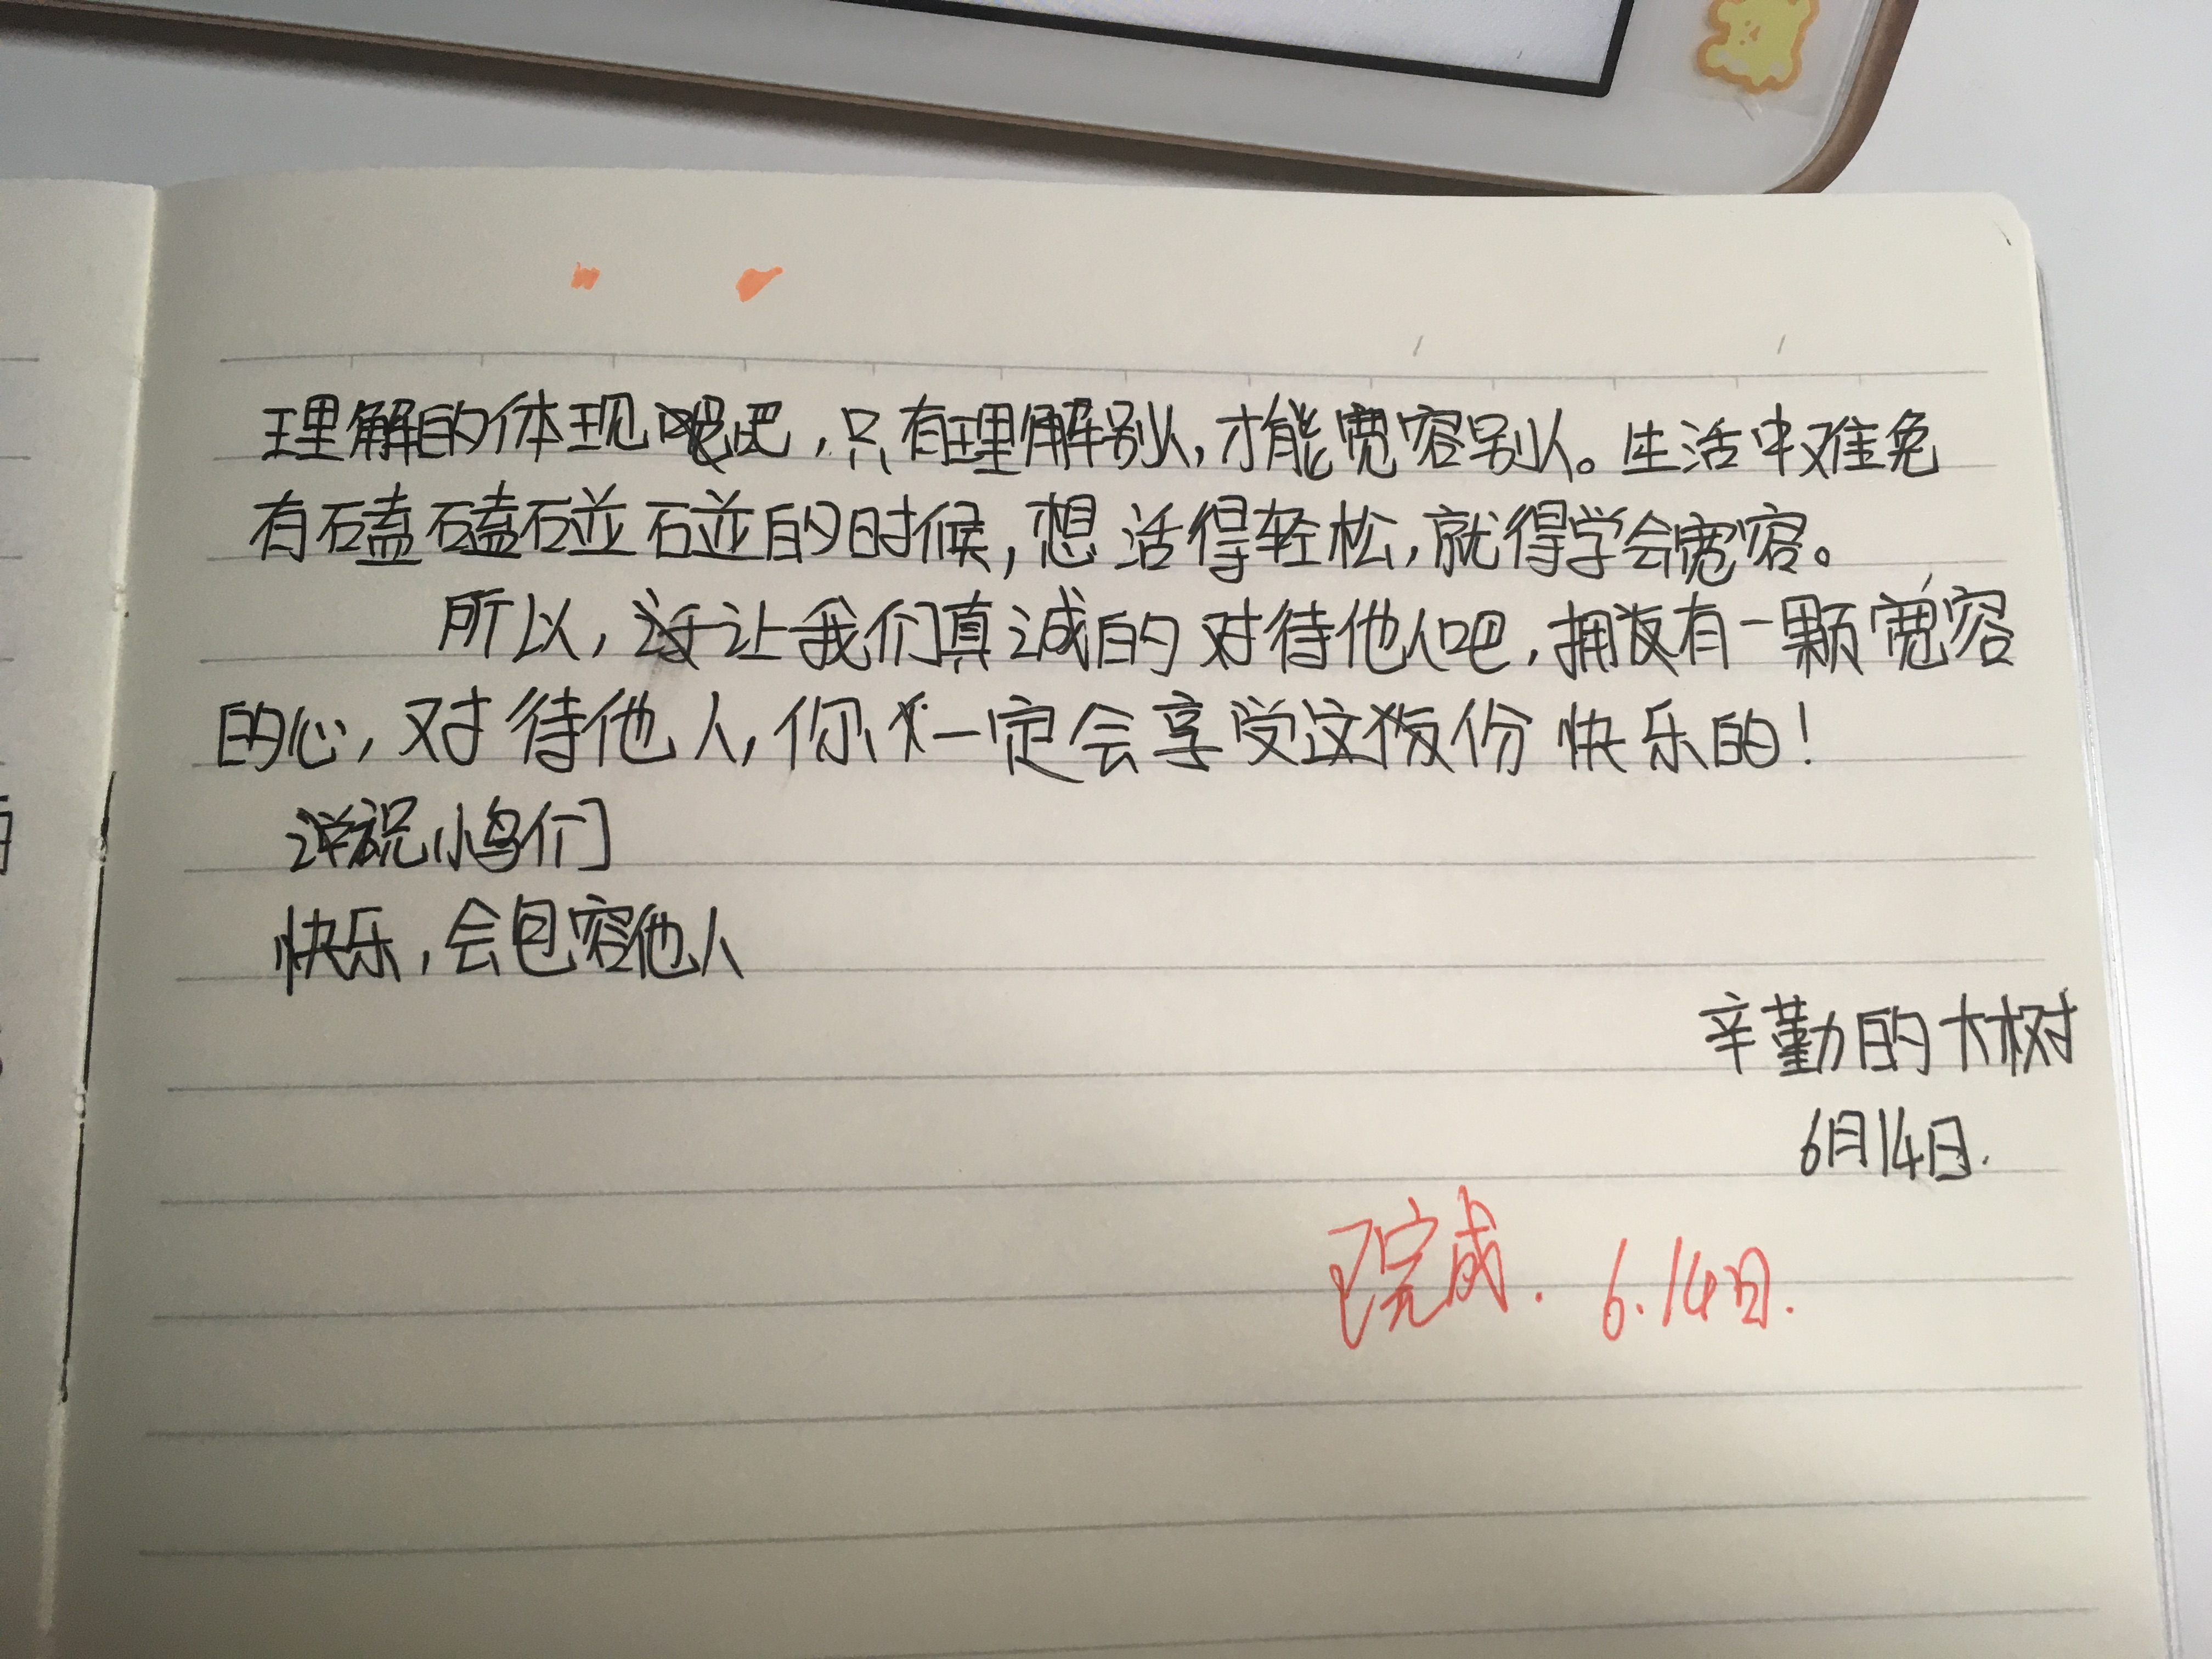 理解的体现吧，只有理解别人，才能宽容别人。生活中难免
有磕磕碰碰的时候，想活得轻松，就得学会宽容。
所以，让我们真诚的对待他人吧，拥有一颗宽容
的心，对待他人，你一定会享受这份快乐的！
祝小鸟们
快乐，会包容他人
辛勤的大树
6月14日.
已完成. 6.14日.